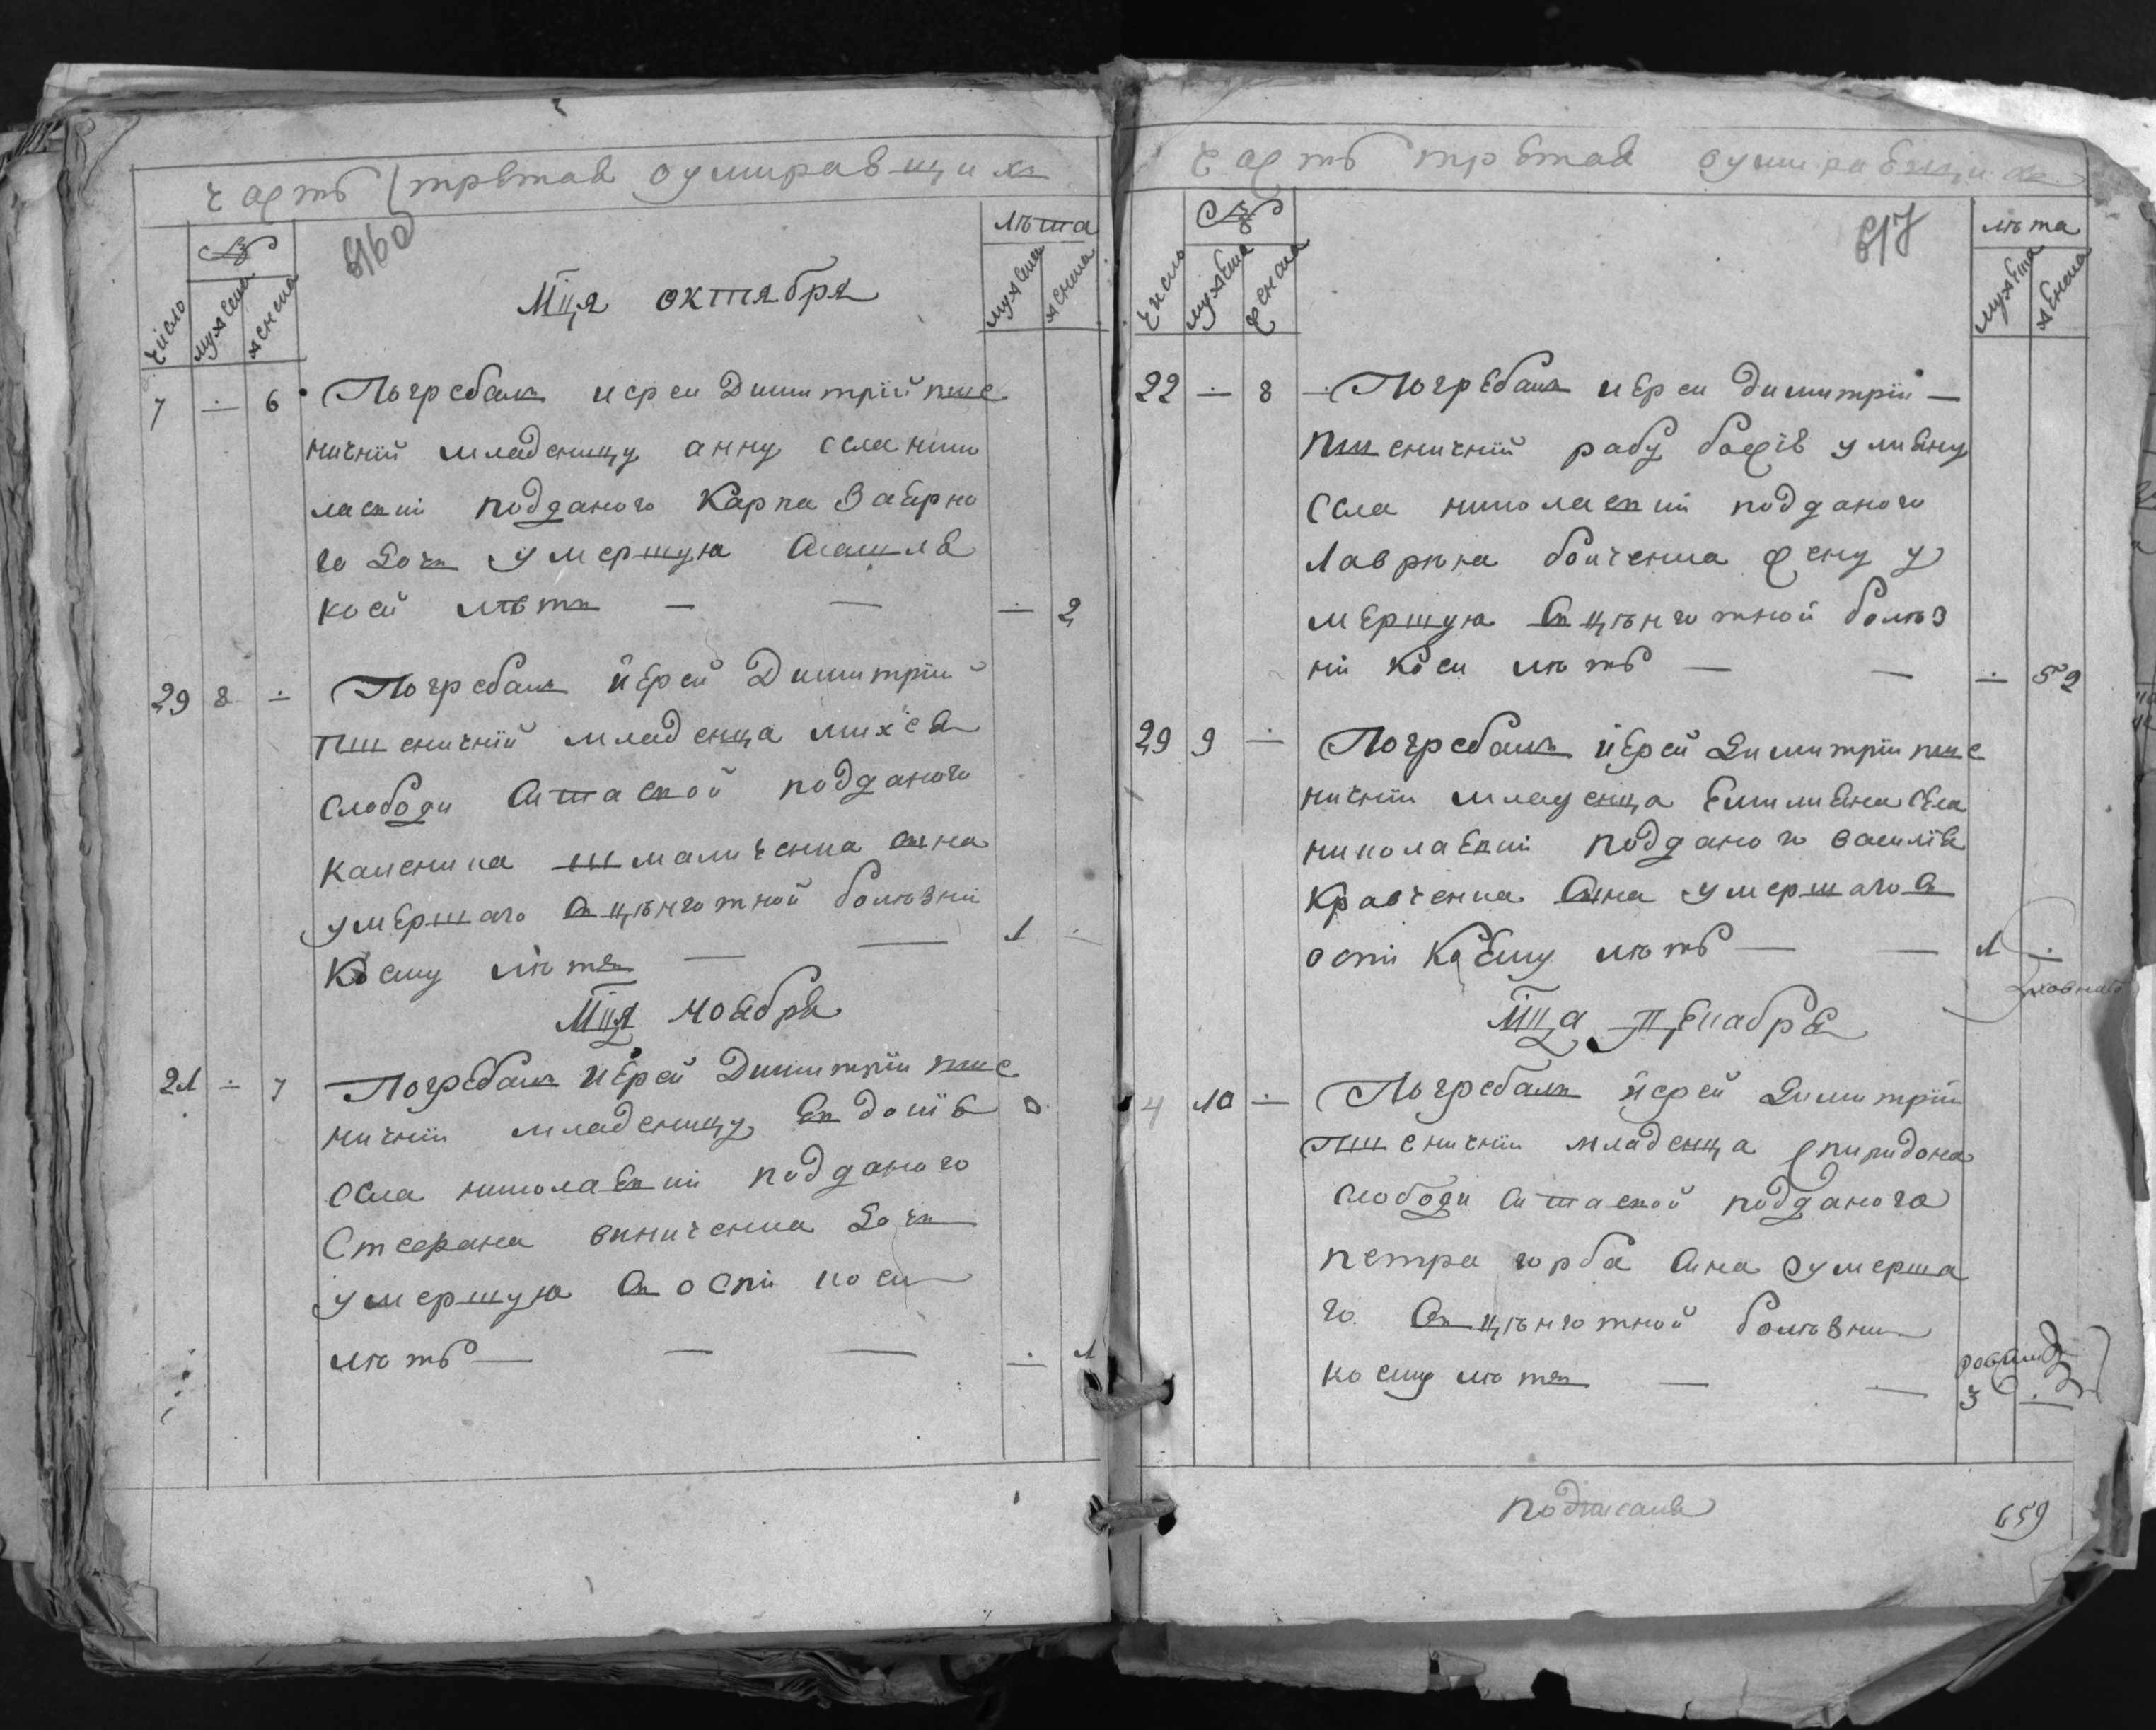 часть третая оумиравщихъ
516об
число
мужеска
женска
Мця октября
лѣта
мужеска
женска
7 ÷ 6 Погребалъ иереи Димитрїй пше
ничнїй младеницу анну села нико
лаевки подданого Карпа Заѣрно
го дочъ умершую
коей лѣтъ — — ÷ 2
29 8 ÷ Погребалъ йерей Димитрїй
пшеничнїй младенца михея
слободи подданого
каленика шмаличенка сина
умершаго от цынготной болѣзни
коему лѣтъ — — 1 ÷
Мця ноября
21 ÷ 7 Погребалъ йерей Димитрїй пше
ничнїй младеницу Евдокїю
села николаевки подданого
Стефана виниченка дочъ
умершую от оспи коей
лѣтъ — — — ÷ 1
часть третая оумиравщихъ
517
число
мужеска
женска
лѣта
мужеска
женска
22 ÷ 8 Погребалъ иереи димитрїй —
пшеничнїй рабу божію улияну
села николаевки подданого
Лаврѣна бойченка жену у
мершую от цынготной болѣз
нї коеи лѣтъ — — ÷ 52
29 9 ÷ Погребалъ йерей Димитрїй пше
ничнїй младенца Емилияна села
николаевки подданого василїя
Кравченка сина умершаго от
оспи коему лѣтъ — — 1 ÷
Мца Декабря
4 10 ÷ Погребалъ йерей Димитрїй
пшеничнїй младенца спиридона
слободи подданого
петра горба сина оумерша
го от цынготной болѣзни
коему лѣтъ — — 3 ÷
подписалъ
659